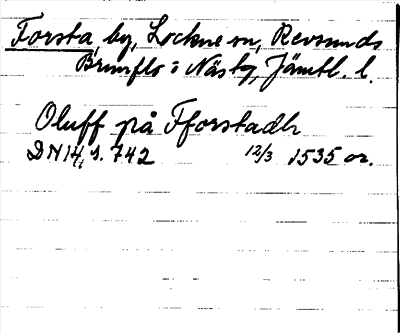 Forsta, by, Lockne sn, Revsunds
Brunflo o Näs tg, Jämtl. l.
Oluff på Fforstadh
DN 14, s. 742 12/3 1535 or.